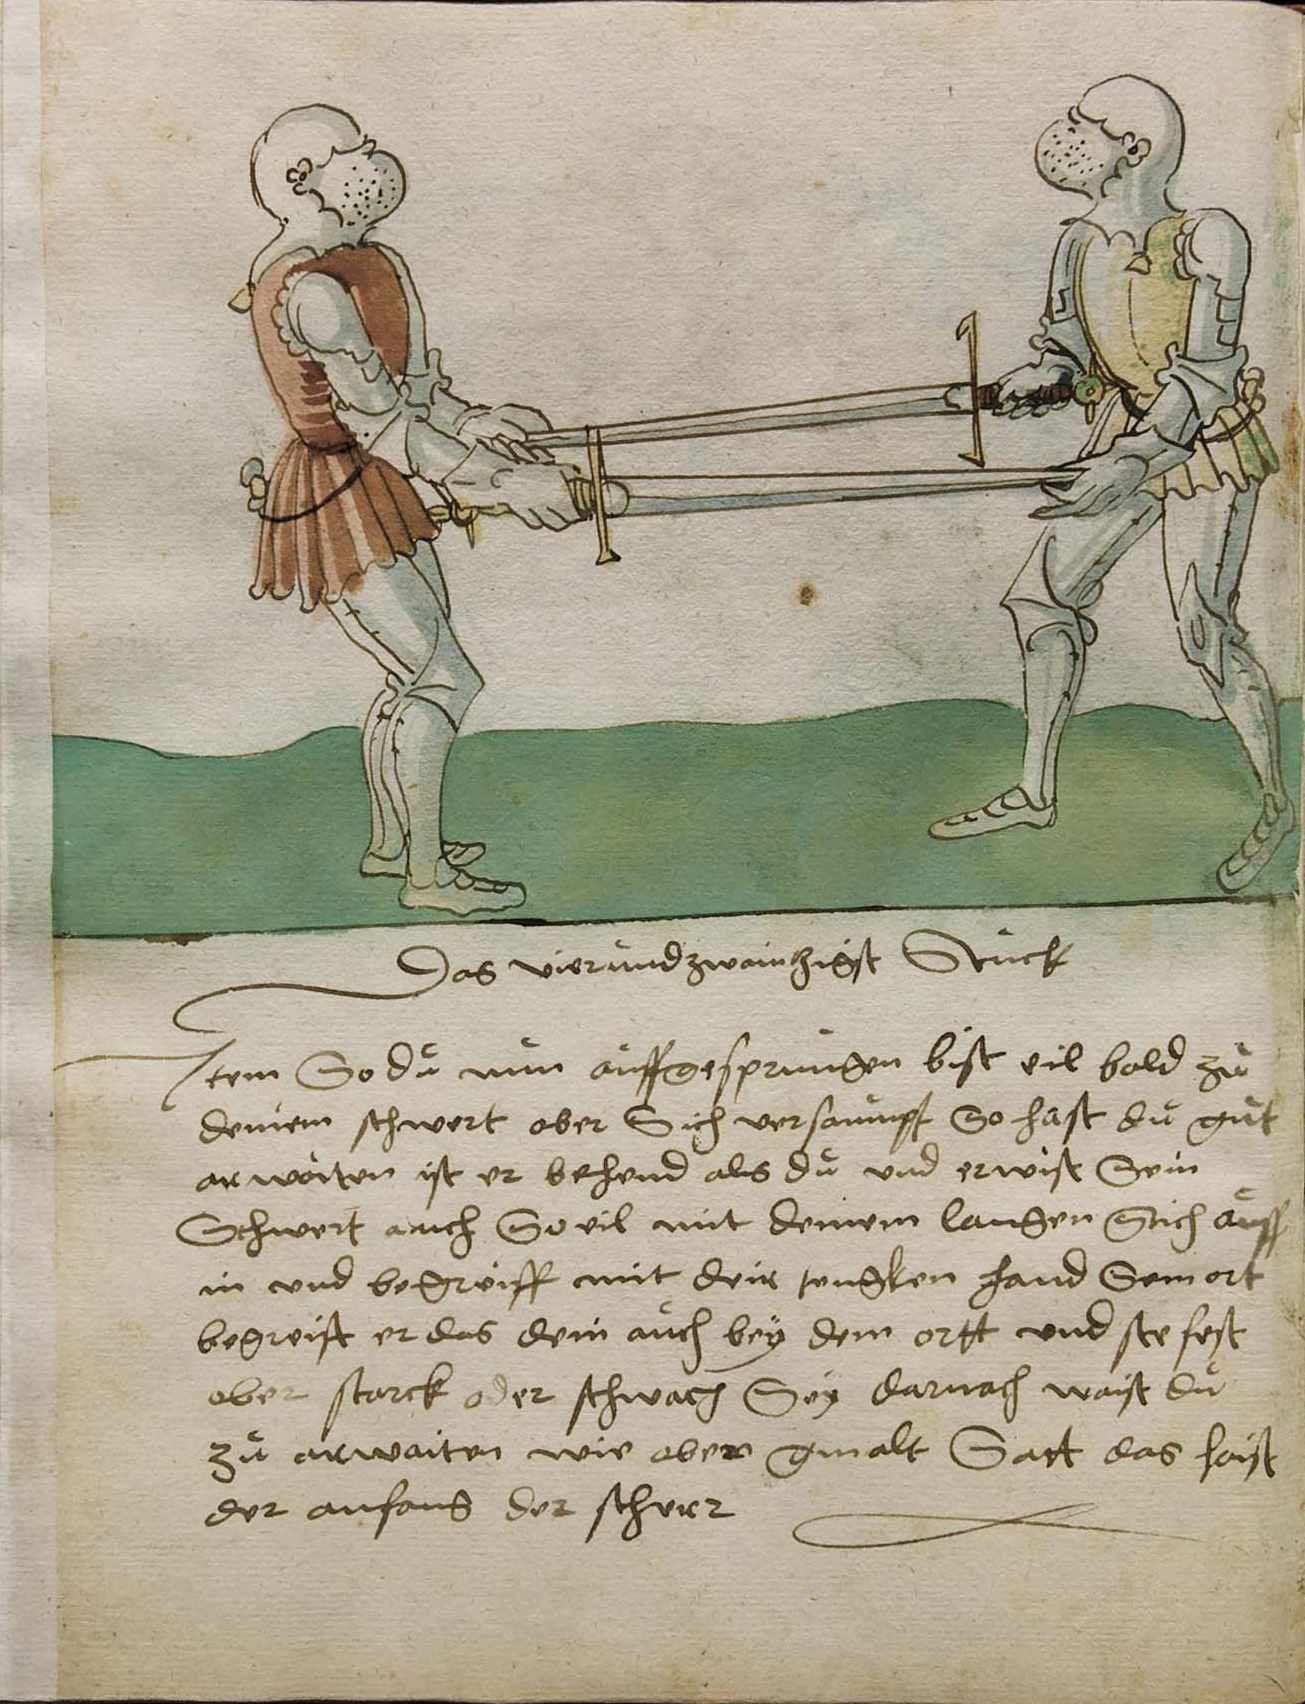 Das vierundzwaintzigist Stuck
Item So du nun auffgesprungen bist eil bald zu
deinem schwert aber Sich versaumpst So hast du gut
arwaiten ist er behend als du und erwist Sein
Schwert auch So eil mit deinem langen Stich auff
in und begreiff mit deir tengken hand Sein ort
begreift er das dein auch bey dem ortt und ste fest
aber starck oder schwach Sey darnach waist du
zu arwaiten wie aber gmalt Satt das haist
der anfang der scherr